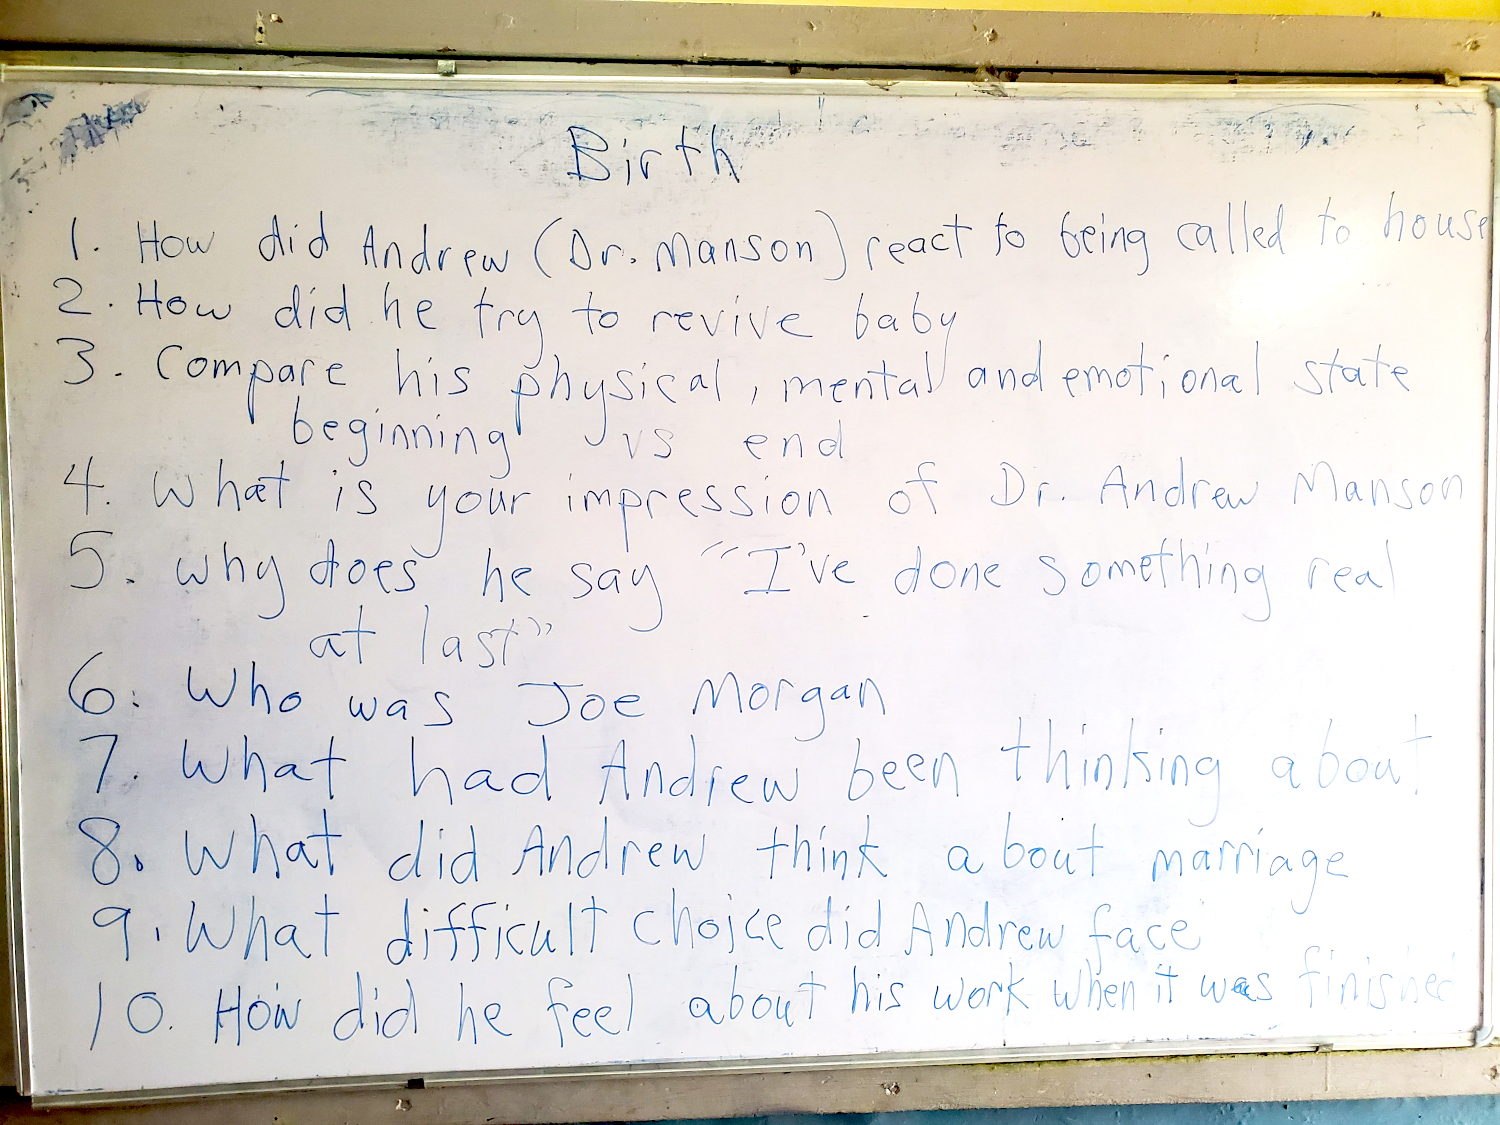 Birth
1. How did Andrew (Dr. Manson) react to being called to house
2. How did he try to revive baby
3. Compare his physical, mental and emotional state
beginning vs end
4. What is your impression of Dr. Andrew Manson
5. Why does he say "I've done something real
at last"
6. Who was Joe Morgan
7. What had Andrew been thinking about
8. What did Andrew think about marriage
9. What difficult choice did Andrew face
10. How did he feel about his work when it was finished